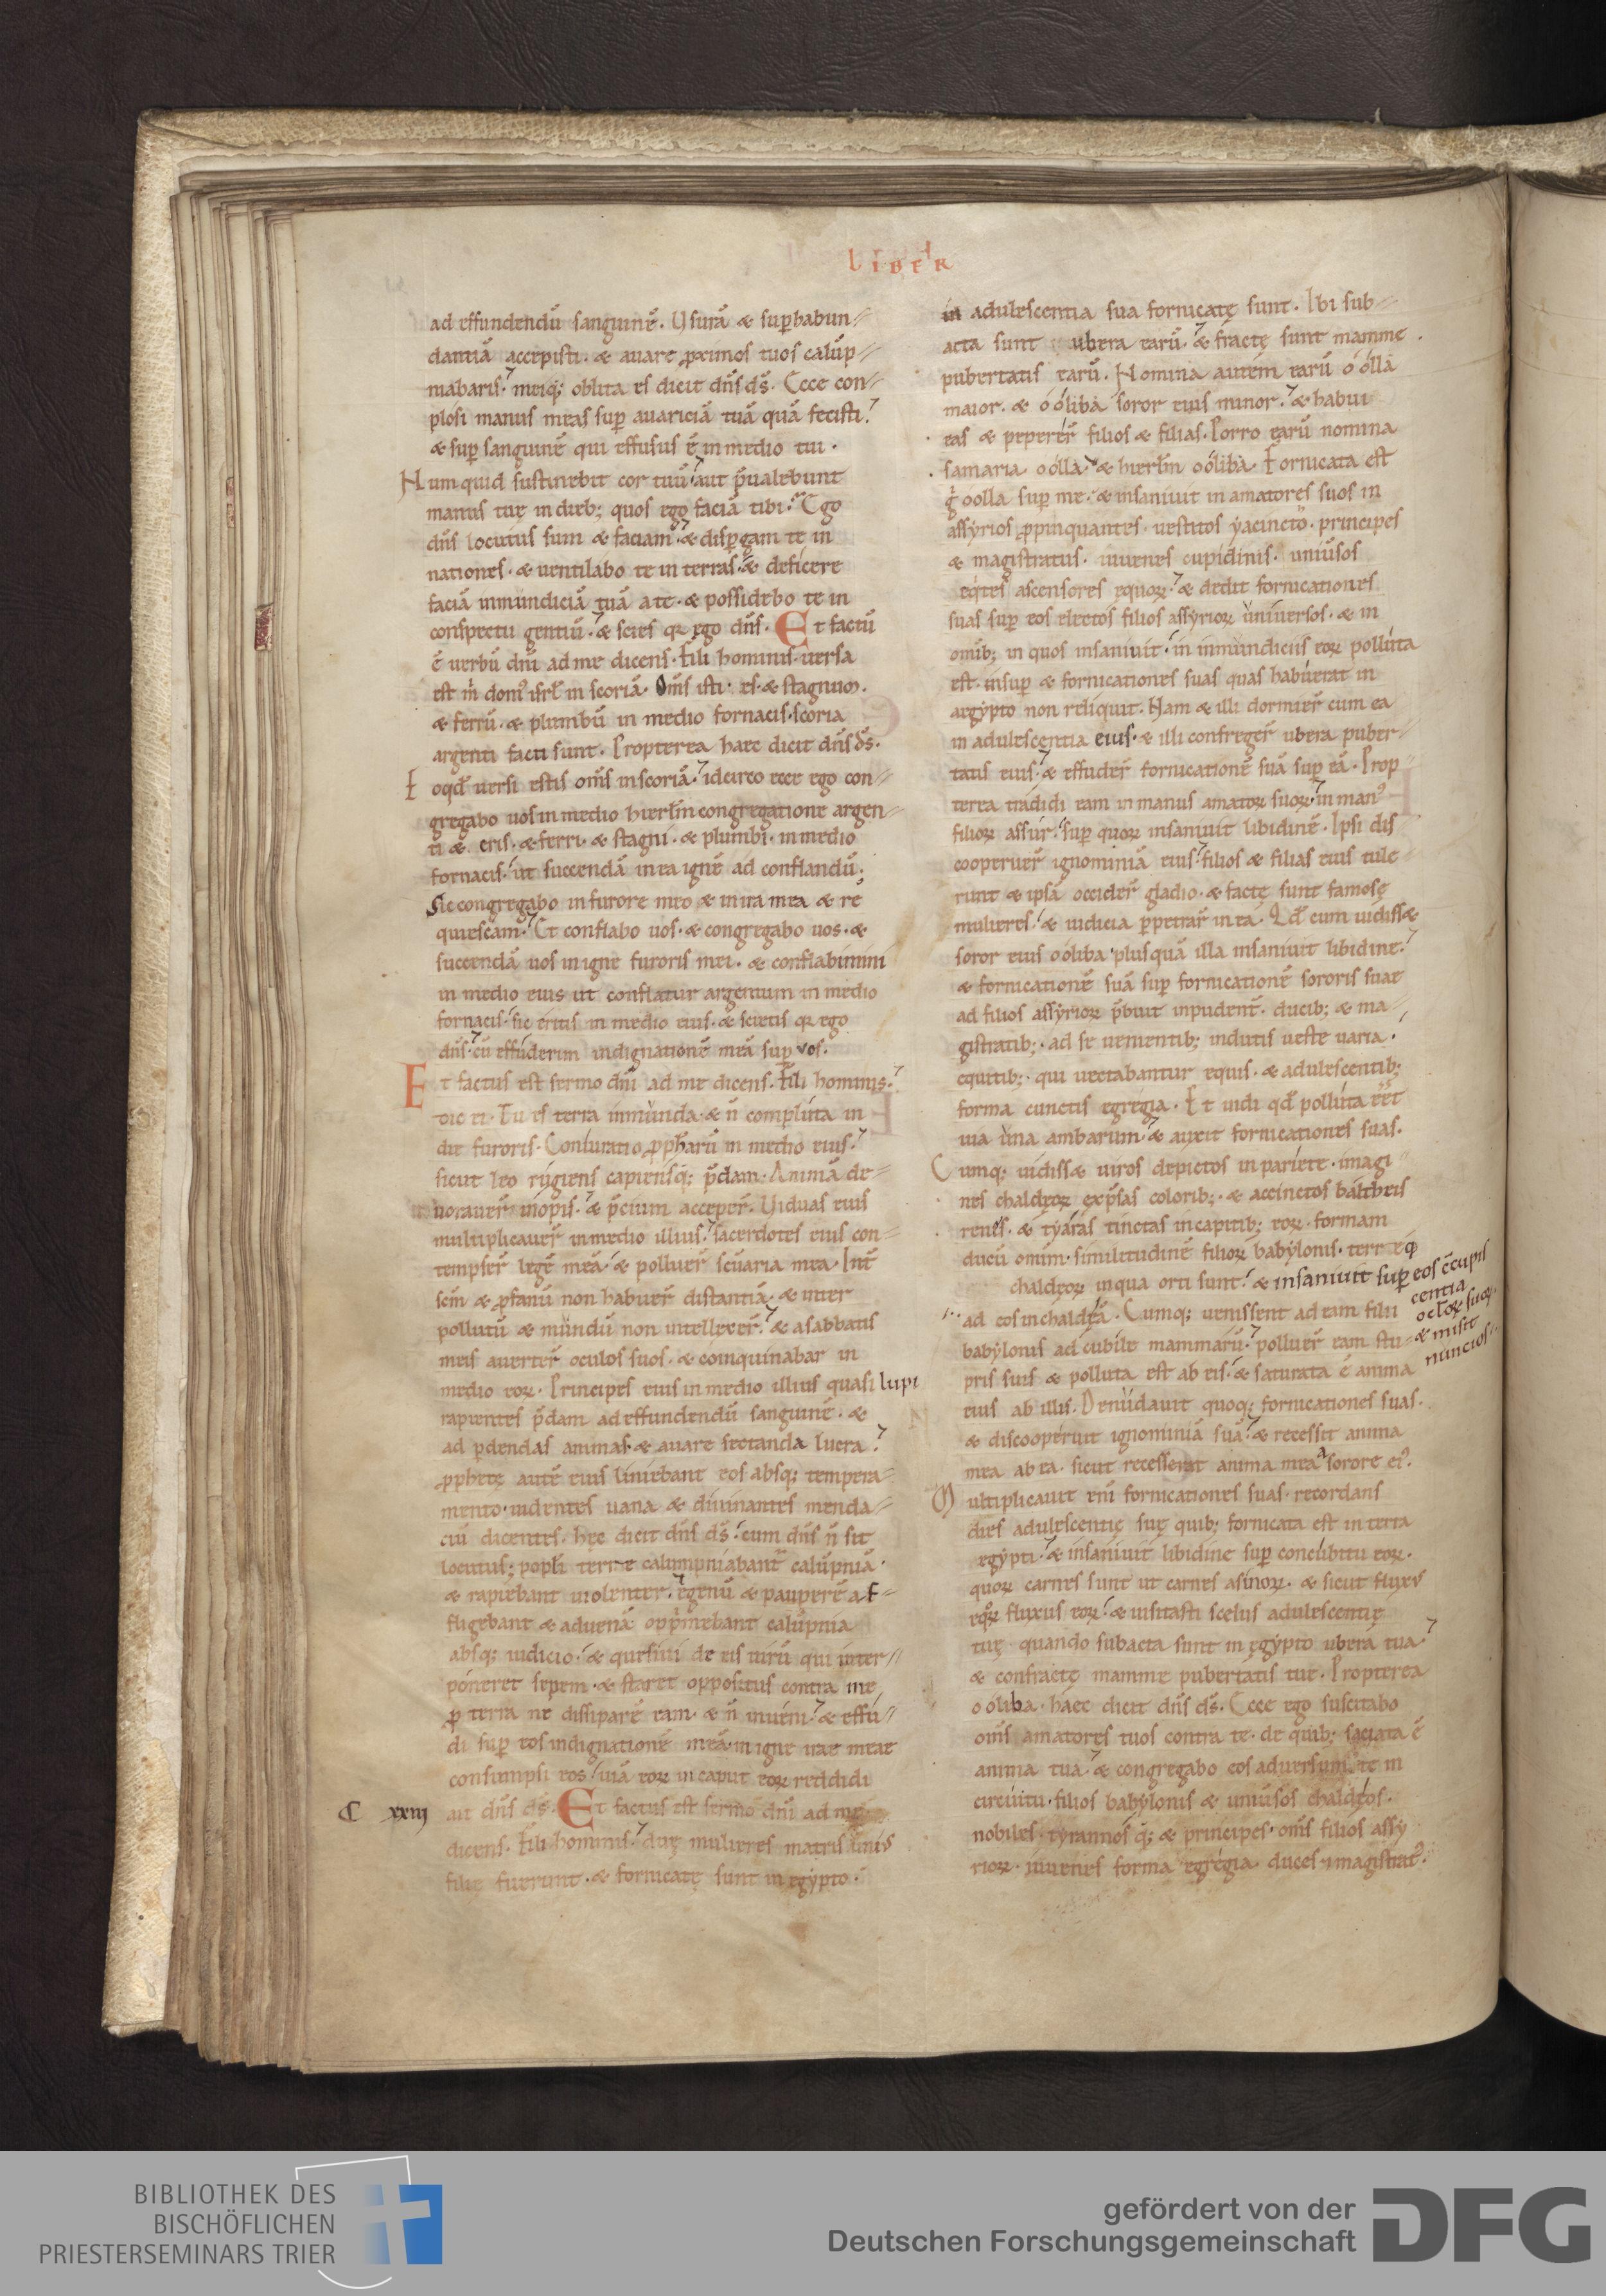 LIBER
ad effundendū sanguinē. Usurā & sup̄habun⸗
dantiā accepisti. & auare ꝓximos tuos calūp⸗
niabaris. meiq; oblita es dicit dn̄s ds̄. Ecce con⸗
plosi manus meas sup̄ auariciā tuā quā fecisti.
& sup̄ sanguinē qui effusus ē in medio tui.
Numquid sustinebit cor tuū. aut p̄ualebunt
manus tuę in dieb; quos ego faciā tibi. Ego
dn̄s locutus sum & faciam. & disp̄gam te in
nationes. & uentilabo te in terras. & deficere
faciā inmundiciā tuā a te. & possidebo te in
conspectu gentiū. & scies qa ego dn̄s. Et factū
ē uerbū dn̄i ad me dicens. Fili hominis. uersa
est m̄ dom' isrl̄ in scoriā. Om̄s isti. es. & stagnum.
& ferrū. & plumbū in medio fornacis. scoria
argenti facti sunt. Propterea haec dicit dn̄s ds̄.
Eoqd̄ uersi estis om̄s in scoriā. idcirco ecce ego con⸗
gregabo uos in medio hierl̄m congregatione argen⸗
ti & eris. & ferri. & stagni. & plumbi. in medio
fornacis. ut succendā in ea ignē ad conflandū.
Sic congregabo in furore meo & in ira mea & re
quiescam. Et conflabo uos. & congregabo uos. &
succendā uos in igne furoris mei. & conflabimini
in medio eius ut conflatur argentum in medio
fornacis. sic eritis in medio eius. & scietis qa ego
dn̄s. cū effuderim indignationē meā sup̄ vos.
Et factus est sermo dn̄i ad me dicens. Fili hominis.
dic ei. Tu es terra inmunda. & n̄ compluta in
die furoris. Coniuratio ꝓpharū in medio eius.
sicut leo rugiens capiensq; p̄dam. Animā de⸗
uorauer̄ inopis. & p̄cium acceper̄. Uiduas eius
multiplicauer̄ in medio illius. sacerdotes eius con⸗
tempser̄ legē meā. & polluer̄ sc̄uaria mea. Int̄
sc̄m & ꝓfanū non habuer̄ distantiā. & inter
pollutū & mundū non intellexer̄. & a sabbatis
meis auerter̄ oculos suos. & coinquinabar in
medio eoꝝ. Principes eius in medio illius quasi lupi
rapientes p̄dam ad effundendū sanguinē. &
ad p̄dendas animas. & auare sectanda lucra.
ꝓphetę autē eius liniebant eos absq; tempera⸗
mento. uidentes uana & diuinantes menda⸗
ciū dicentes. hęc dicit dn̄s ds̄. cum dn̄s n̄ sit
locutus; popl̄i terre calumpniabant calūpniā.
& rapiebant uiolenter. egenū & pauperē af⸗
fligebant & aduenā opp̄mebant calūpnia
absq; iudicio. & quesiui de eis uirū qui inter⸗
poneret sepem. & staret oppositus contra me
ꝓ terra ne dissiparē eam. & n̄ inueni. & effu⸗
di sup̄ eos indignationē meā. in igne irae meae
consumpsi eos. uiā eoꝝ in caput eoꝝ reddidi
C xxiij ait dn̄s ds̄. Et factus est sermo dn̄i ad me
dicens. Fili hominis. duę mulieres matris unius
filię fuerunt. & fornicatę sunt in egypto.
in adulescentia sua fornicatę sunt. Ibi sub⸗
acta sunt ubera earū. & fractę sunt mamme
pubertatis earū. Nomina autem earū oolla
maior. & ooliba soror eius minor. & habui
eas & peperer̄ filios & filias. Porro earū nomina
samaria oolla. & hierl̄m ooliba. Fornicata est
g̊ oolla sup̄ me. & insaniuit in amatores suos in
assyrios ꝓpinquantes. uestitos yacincto. principes
& magistratus. iuuenes cupidinis. uniūsos
eqites ascensores equoꝝ. & dedit fornicationes
suas sup̄ eos electos filios assyrioꝝ uniuersos. & in
omīb; in quos insaniuit. in inmundiciis eoꝝ polluta
est. insup̄ & fornicationes suas quas habuerat in
aegypto non reliquit. Nam & illi dormier̄ cum ea
in adulescentia eius. & illi confreger̄ ubera puber⸗
tatis eius. & effuder̄ fornicationē suā sup̄ eā. Prop⸗
terea tradidi eam in manus amatoꝝ suoꝝ. in man'
filioꝝ assur. sup̄ quoꝝ insaniuit libidinē. Ipsi dis⸗
cooperuer̄ ignominiā eius. filios & filias eius tule⸗
runt & ipsā occider̄ gladio. & factę sunt famosę
mulieres. & iudicia p̄petrar̄ in ea. Qd̄ cum uidiss&
soror eius ooliba plusquā illa insaniuit libidine.
& fornicationē suā sup̄ fornicationē sororis suae
ad filios assyrioꝝ p̄buit inpudent̄. ducib; & ma⸗
gistratib;. ad se uenientib; indutis ueste uaria.
equitib;. qui uectabantur equis. & adulescentib;
forma cunctis egregia. Et uidi qd̄ polluta eēt
uia una ambarum. & auxit fornicationes suas.
Cumq; uidiss& uiros depictos in pariete. imagi⸗
nes chaldęoꝝ exp̄ssas colorib;. & accinctos baltheis
renes. & tyaras tinctas in capitib; eoꝝ. formam
ducū omīum. similitudinē filioꝝ babylonis. terręq
chaldęoꝝ in qua orti sunt. & insaniuit sup̄ eos c̄cupis
centia
ocl̄oꝝ suoꝝ.
& misit
nuncios
ad eos in chaldęā. Cumq; uenissent ad eam filii
babylonis ad cubile mammarū. polluer̄ eam stu⸗
pris suis & polluta est ab eis. & saturata ē anima
eius ab illis. Denudauit quoq; fornicationes suas.
& discooperuit ignominiā suā. & recessit anima
mea ab ea. sicut recesserat anima mea a sorore ei'.
Multiplicauit eni fornicationes suas. recordans
dies adulescentię suę quib; fornicata est in terra
egypti. & insaniuit libidine sup̄ concubitu eoꝝ.
quoꝝ carnes sunt ut carnes asinoꝝ. & sicut fluxus
eqoꝝ fluxus eoꝝ. & uisitasti scelus adulescentię
tuę. quando subacta sunt in ęgypto ubera tua.
& confractę mamme pubertatis tue. Propterea
ooliba. haec dicit dn̄s ds̄. Ecce ego suscitabo
om̄s amatores tuos contra te. de quib; saciata ē
anima tua. & congregabo eos aduersum te in
circuitu. filios babylonis & uniūsos chaldęos.
nobiles. tyrannos q; & principes. om̄s filios assy
rioꝝ. iuuenes forma egregia. duces & magistrat'.
BIBLIOTHEK DES
BISCHÖFLICHEN
PRIESTERSEMINARS TRIER
gefördert von der
Deutschen Forschungsgemeinschaft
DFG